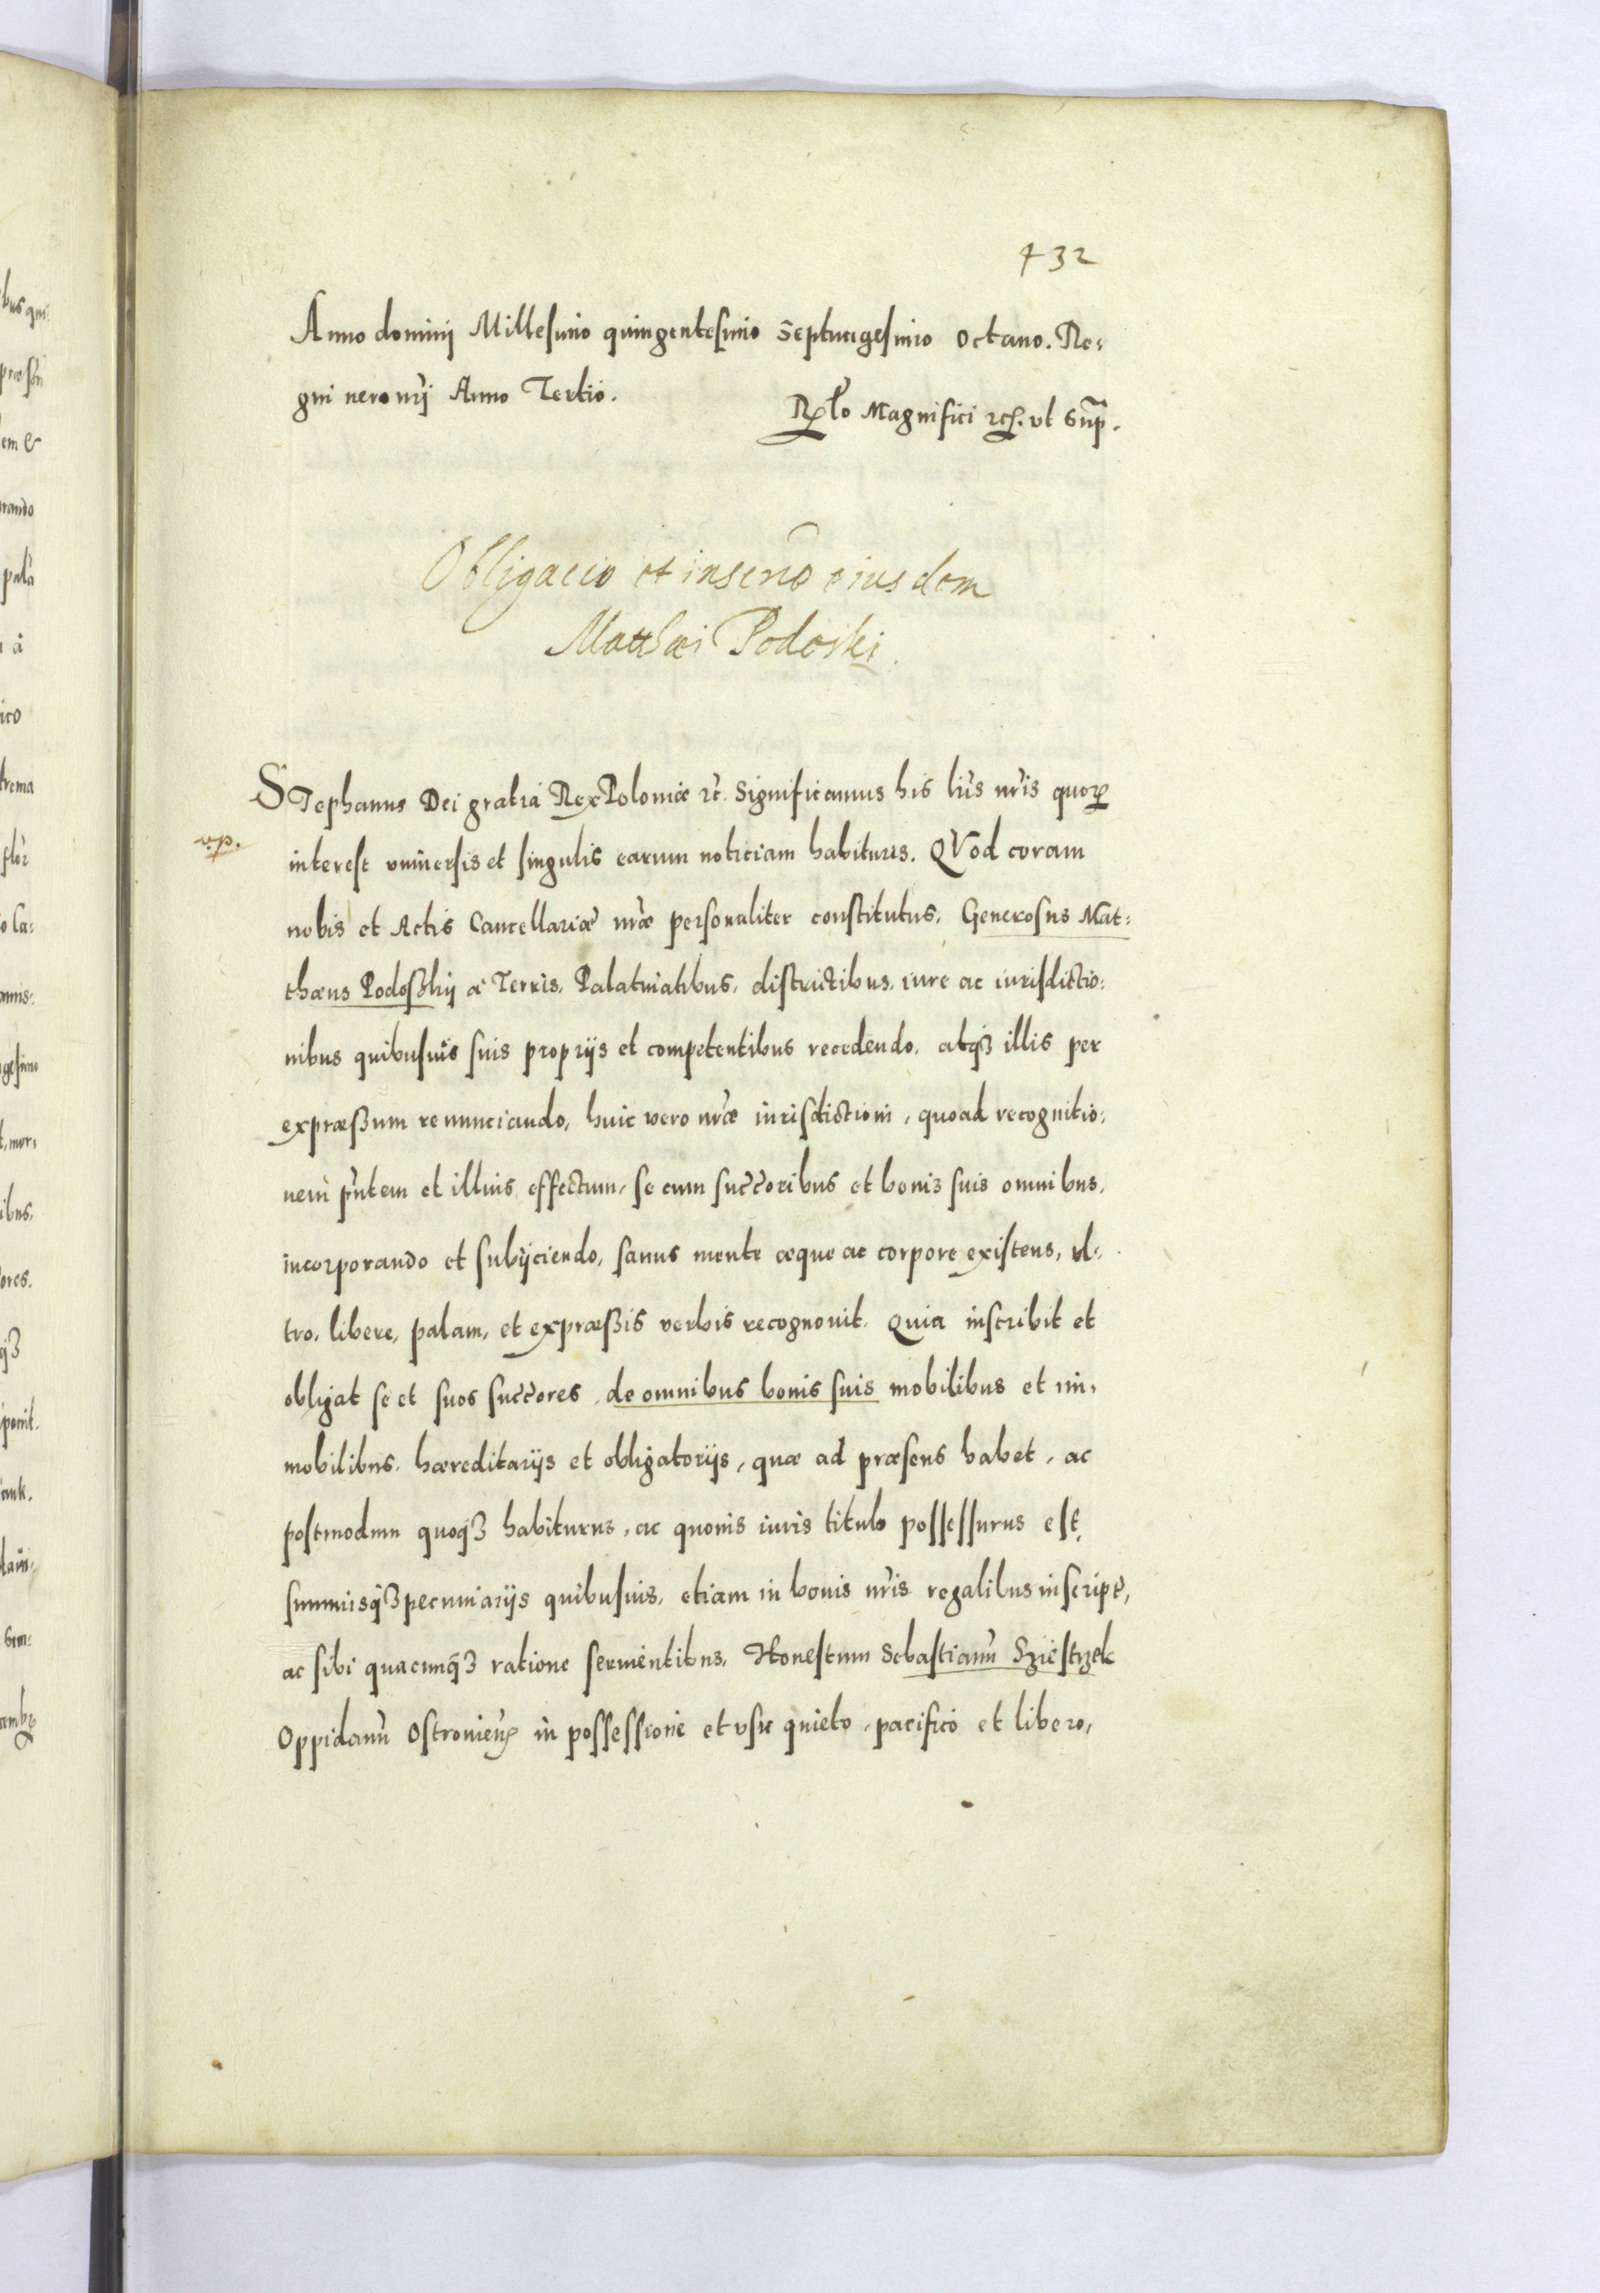 432
Anno dominj Millesimo quingentesimo Septuagesimo octauo. Re:
gni uero nrj Anno Tertio.
Rlo Magnifici etc. vt Sup.
Obligacio et inscrio eiusdem
Matthæi Podoski.
STephanus Dei gratia Rex Poloniæ etc. Significamus his lris nris quorum
v.p.
interest vniuersis et singulis earum noticiam habituris. QVod coram
nobis et Actis Cancellariæ nræ personaliter constitutus. Generosus Mat:
thæus Podoßkij a Terris, Palatinatibus, districtibus, iure ac iurisdictio:
nibus quibusuis suis proprijs et competentibus recedendo, atq3 illis per
expræßum renunciando, huic vero nræ iurisdictioni, quoad recognitio:
nem pntem et illius effectum, se cum succoribus et bonis suis omnibus,
incorporando et subijciendo, sanus mente æque ac corpore existens, vl:
tro, libere, palam, et expræßis verbis recognouit. Quia inscribit et
obligat se et suos succores, de omnibus bonis suis mobilibus et im,
mobilibus, hæreditarijs et obligatorijs, quæ ad præsens habet, ac
postmodum quoq3 habiturus, ac quouis iuris titulo possessurus est,
summisq3 pecuniarijs quibusuis, etiam in bonis nris regalibus inscript,
ac sibi quacunq3 ratione seruientibus, Honestum Sebastianu Sziestrzek
Oppidanu Ostrouien in possessione et vsu quieto, pacifico et libero,